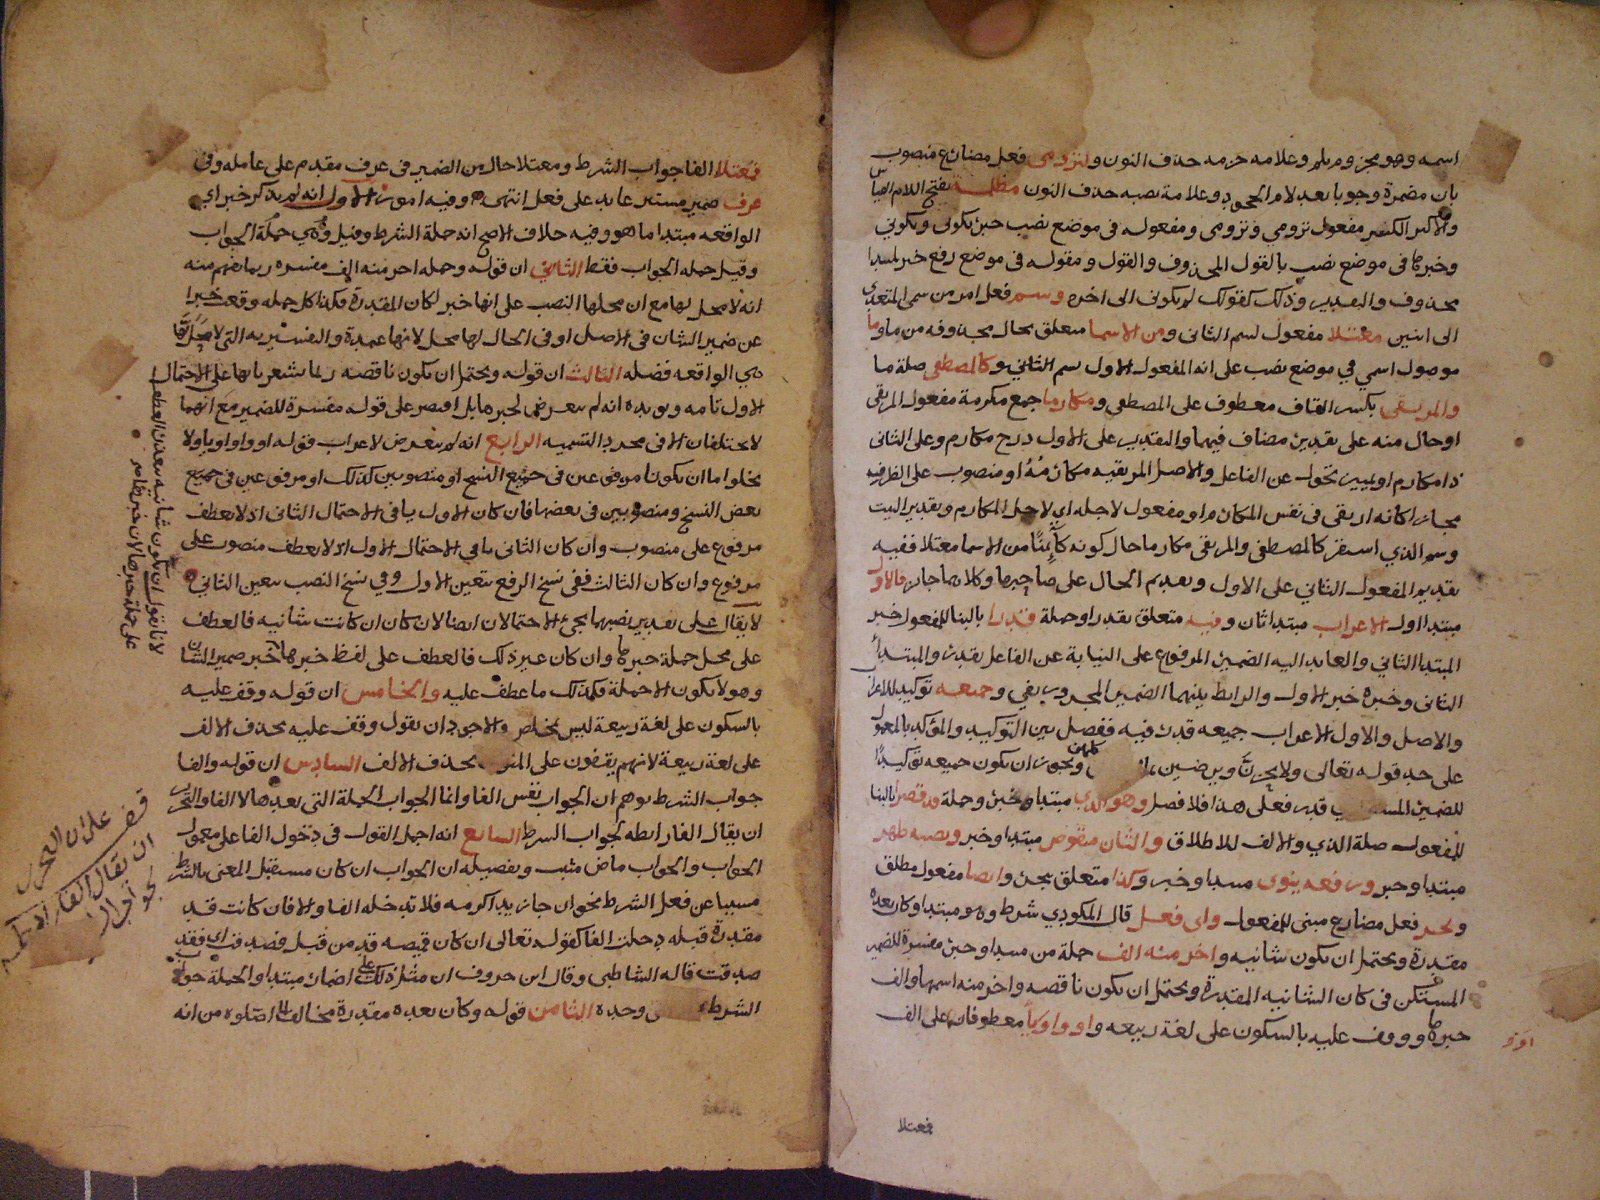 اسمه وهو مجزوم بلم وعلامة جزمه حذف النون ولترومي فعل مضارع منصوب
بان مضمرة وجوبا بعد لام الجحود وعلامة نصبه حذف النون مظلمة بفتح اللام القياس
والاكثر الكسر مفعول ترومي وترومي ومفعوله في موضع نصب خبر تكوني وتكوني
وخبرها في موضع نصب بالقول المحذوف والقول ومقوله في موضع رفع خبر لمبتدا
محذوف والتقدير وذلك كقولك لم تكوني الى اخره وسم فعل امر من سمى المتعدي
الى اثنين معتلا مفعول لسم الثاني ومن الاسما متعلق بحال محذوفه من ما وما
موصول اسمي في موضع نصب على انه المفعول الاول بسم الثاني وكالمصطفى صلة ما
والمرتقي بكسر القاف معطوف على المصطفى ومكارما جمع مكرمة مفعول المرتقي
اوحال منه على تقدير مضاف فيهما والتقدير على الاول درج مكارم وعلى الثاني
ذا مكارم او تمييز تحول عن الفاعل والاصل المرتقيه مكارمُهُ او منصوب على الظرفيه
مجازا كانه ارتقى في نفس المكارم او مفعول لاجله اي لاجل المكارم وتقدير البيت
وسم الذي استقر كالمصطفى والمرتقي مكارما حال كونه كائنًا من الاسما معتلا ففيه
تقديم المفعول الثاني على الاول وتقديم الحال على صاحبها وكلاهما جائز فالاول
مبتدا اول الاعراب مبتدا ثان وفيه متعلق بقدرا وجملة قدرا بالبنا للمفعول خبر
المبتدا الثاني والعايد اليه الضمير المرفوع على النيابة عن الفاعل بقدر والمبتدا
الثاني وخبره خبر الاول والرابط بينهما الضمير المجرور بفي وجميعه توكيد للاعراب
والاصل والاول الاعراب جميعه قدر فيه ففصل بين التوكيد والمؤكد بالمعمول
على حد قوله تعالى ولا يحزنَّ ويرضين كلهن ويجوز ان يكون جميعه توكيدًا
للضمير في قدر فعلى هذا فلا فصل وهو الذي مبتدا وخبر وجملة قد قصرا بالبنا
للمفعول صلة الذي والالف للاطلاق والثان منقوص مبتدا وخبر ونصبه ظهر
مبتدا وخبر ورفعه ينوى مبتدا وخبر وكذا متعلق بيجر وايضا مفعول مطلق
ويجر فعل مضارع مبني للمفعول واي فعل قال المكودي شرط وهو مبتدا وكان بعده
مقدرة ويحتمل ان تكون شانيه واخر منه الف جملة من مبتدا وخبر مفسرة للضمير
المستكن في كان الشانيه المقدرة ويحتمل ان تكون ناقصه واخر منه اسمها والف
خبرها ووقف عليه بالسكون على لغة ربيعه واو او يا معطوفان على الف
او و
فعتلا
فمعتلا الفا جواب الشرط ومعتلا حال من الضمير في عرف مقدم على عامله وفي
عرف ضمير مستتر عايد على فعل انتهى وفيه امور الاول انه لم يذكر خبر اي
الواقعه مبتدا ما هو وفيه خلاف الاصح انه جملة الشرط وقيل وهي جملة الجواب
وقيل جمله الجواب فقط الثاني ان قوله وجمله اخر منه الف مفسره ربما يفهم منه
انه لا محل لها مع ان محلها النصب على انها خبر لكان المقدرة وهكذا كل جمله وقعت خبرا
عن ضمير الشان في الاصل او في الحال لها محل لانها عمدة والتفسيريه التي لا محل لها
هي الواقعه فضله الثالث ان قوله ويحتمل ان تكون ناقصه ربما يشعر بانها على الاحتمال
الاول تامه ويويده انه لم يتعرض لخبرها بل اقتصر على قوله مفسرة للضمير مع انهما
لا يختلفان الا في مجرد التسميه الرابع انه لم يتعرض لاعراب قوله او واو او يا ولا
يخلو اما ان يكونا مرفوعين في جميع النسخ او منصوبين كذلك او مرفوعين في جميع
بعض النسخ ومنصوبين في بعضها فان كان الاول ياتي الاحتمال الثاني اذ لا يعطف
مرفوع على منصوب وان كان الثاني ياتي الاحتمال الاول اذ لا يعطف منصوب على
مرفوع وان كان الثالث ففي نسخ الرفع يتعين الاول وفي نسخ النصب يتعين الثاني
لا يقال على تقدير نصبهما يجئ الاحتمالان ايضا لان كان ان كانت شانيه فالعطف
على محل جملة خبرها وان كان غير ذلك فالعطف على لفظ خبرها لان خبر ضمير الشان
وهو لا يكون الا جملة فكذلك ما عطف عليه والخامس ان قوله وقف عليه
بالسكون على لغة ربيعة ليس بمخلص والاجود ان يقول وقف عليه بحذف الالف
على لغة ربيعة لانهم يقفون على المنون بحذف الالف السادس ان قوله والفا
جواب الشرط يوهم ان الجواب نفس الفا وانما الجواب الجملة التي بعدها لا الفا والتحرير
ان يقال الفا رابطه لجواب الشرط السابع انه اجمل القول في دخول الفا على معمول
الجواب والجواب ماض مثبت وتفصيله ان الجواب ان كان مستقبل المعنى بالشرط
مسببا عن فعل الشرط نحو ان جا زيد اكرمه فلا تدخله الفا والا فان كانت قد
مقدرة قبله دخلت الفا كقوله تعالى ان كان قميصه قد من قبل فصدقت اي فقد
صدقت قاله الشاطبي وقال ابن خروف ان مثل ذلك على اضمار مبتدا والجملة جواب
الشرط وحده الثامن قوله وكان بعده مقدرة مخالف لما اصلوه من انه
لا نا نقول ان تكون شانيه يتعين العطف
على جملة خبرها لان خبرها
قف
على ان التحرير
ان يقال الفا رابطة
لجواب الشرط